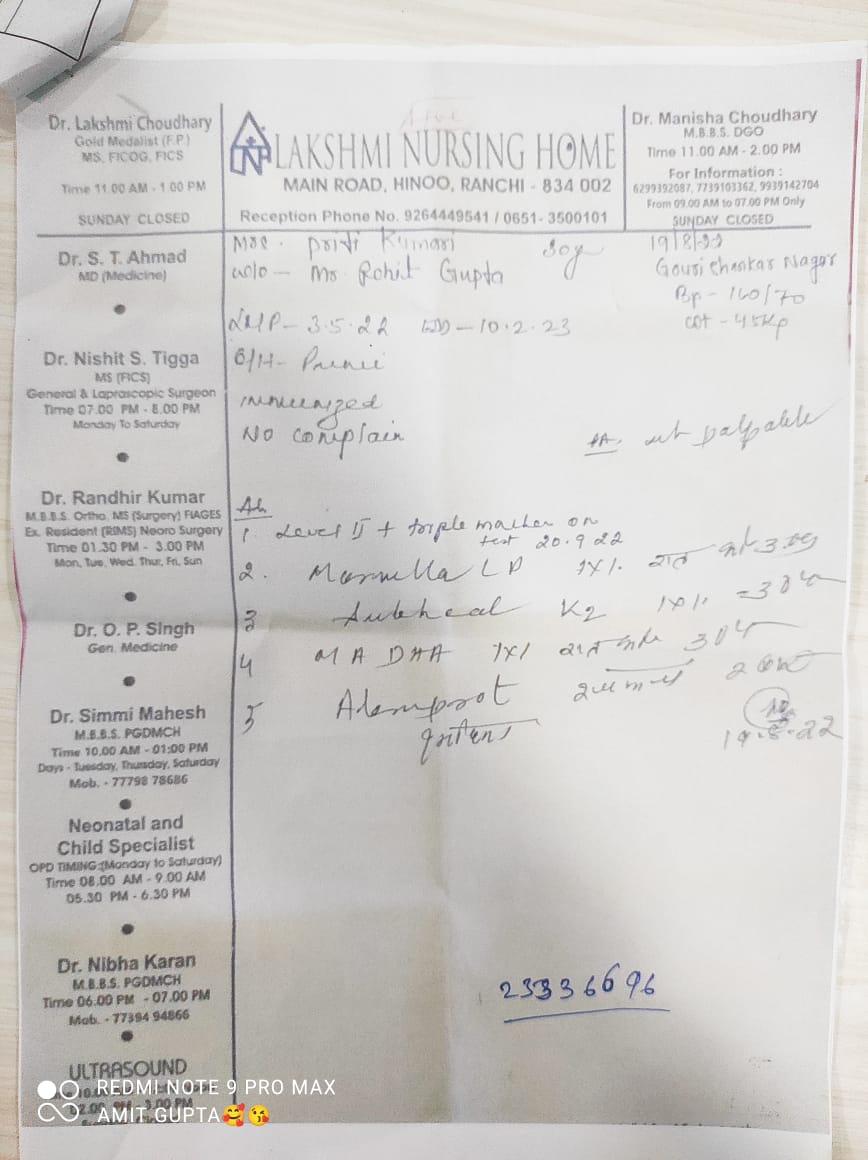 Dr. Lakshmi Choudhary
Gold Medalist (F.P.)
MS, FICOG, FICS
Time 11.00 AM - 1.00 PM
SUNDAY CLOSED
LAKSHMI NURSING HOME
MAIN ROAD, HINOO, RANCHI - 834 002
Reception Phone No. 9264449541 / 0651- 3500101
Dr. Manisha Choudhary
M.B.B.S. DGO
Time 11.00 AM - 2.00 PM
For Information :
6299392087, 7739103362, 9939142704
From 09.00 AM to 07.00 PM Only
SUNDAY CLOSED
Dr. S. T. Ahmad
MD (Medicine)
Dr. Nishit S. Tigga
MS (FICS)
General & Laprascopic Surgeon
Time 07.00 PM - 8.00 PM
Monday To Saturday
Dr. Randhir Kumar
M.B.B.S. Ortho, MS (Surgery) FIAGES
Ex. Resident (RIMS) Neoro Surgery
Time 01.30 PM - 3.00 PM
Mon, Tue, Wed, Thur, Fri, Sun
Dr. O. P. Singh
Gen. Medicine
Dr. Simmi Mahesh
M.B.B.S. PGDMCH
Time 10.00 AM - 01:00 PM
Days - Tuesday, Thursday, Saturday
Mob. - 77798 78686
Neonatal and
Child Specialist
OPD TIMING:(Monday to Saturday)
Time 08.00 AM - 9.00 AM
05.30 PM - 6.30 PM
Dr. Nibha Karan
M.B.B.S. PGDMCH
Time 06.00 PM - 07.00 PM
Mob. - 77394 94866
ULTRASOUND
Mrs. Priti Kumari 30y 19/8/22
w/o - Mr Rohit Gupta
Gouri Shankar Nagar
Bp - 160/70
wt - 45kg
LMP - 3.5.22 EDD - 10.2.23
O/H - Primi
immunized
No complain
P/A. ut palpable
Ad
1. Level II + triple marker on
test 20.9.22
2. LD 1x1
3 K2 1x1
4 MA DHA 1x1
5
19.8.22
23336696
REDMI NOTE 9 PRO MAX
AMIT GUPTA🥰😘